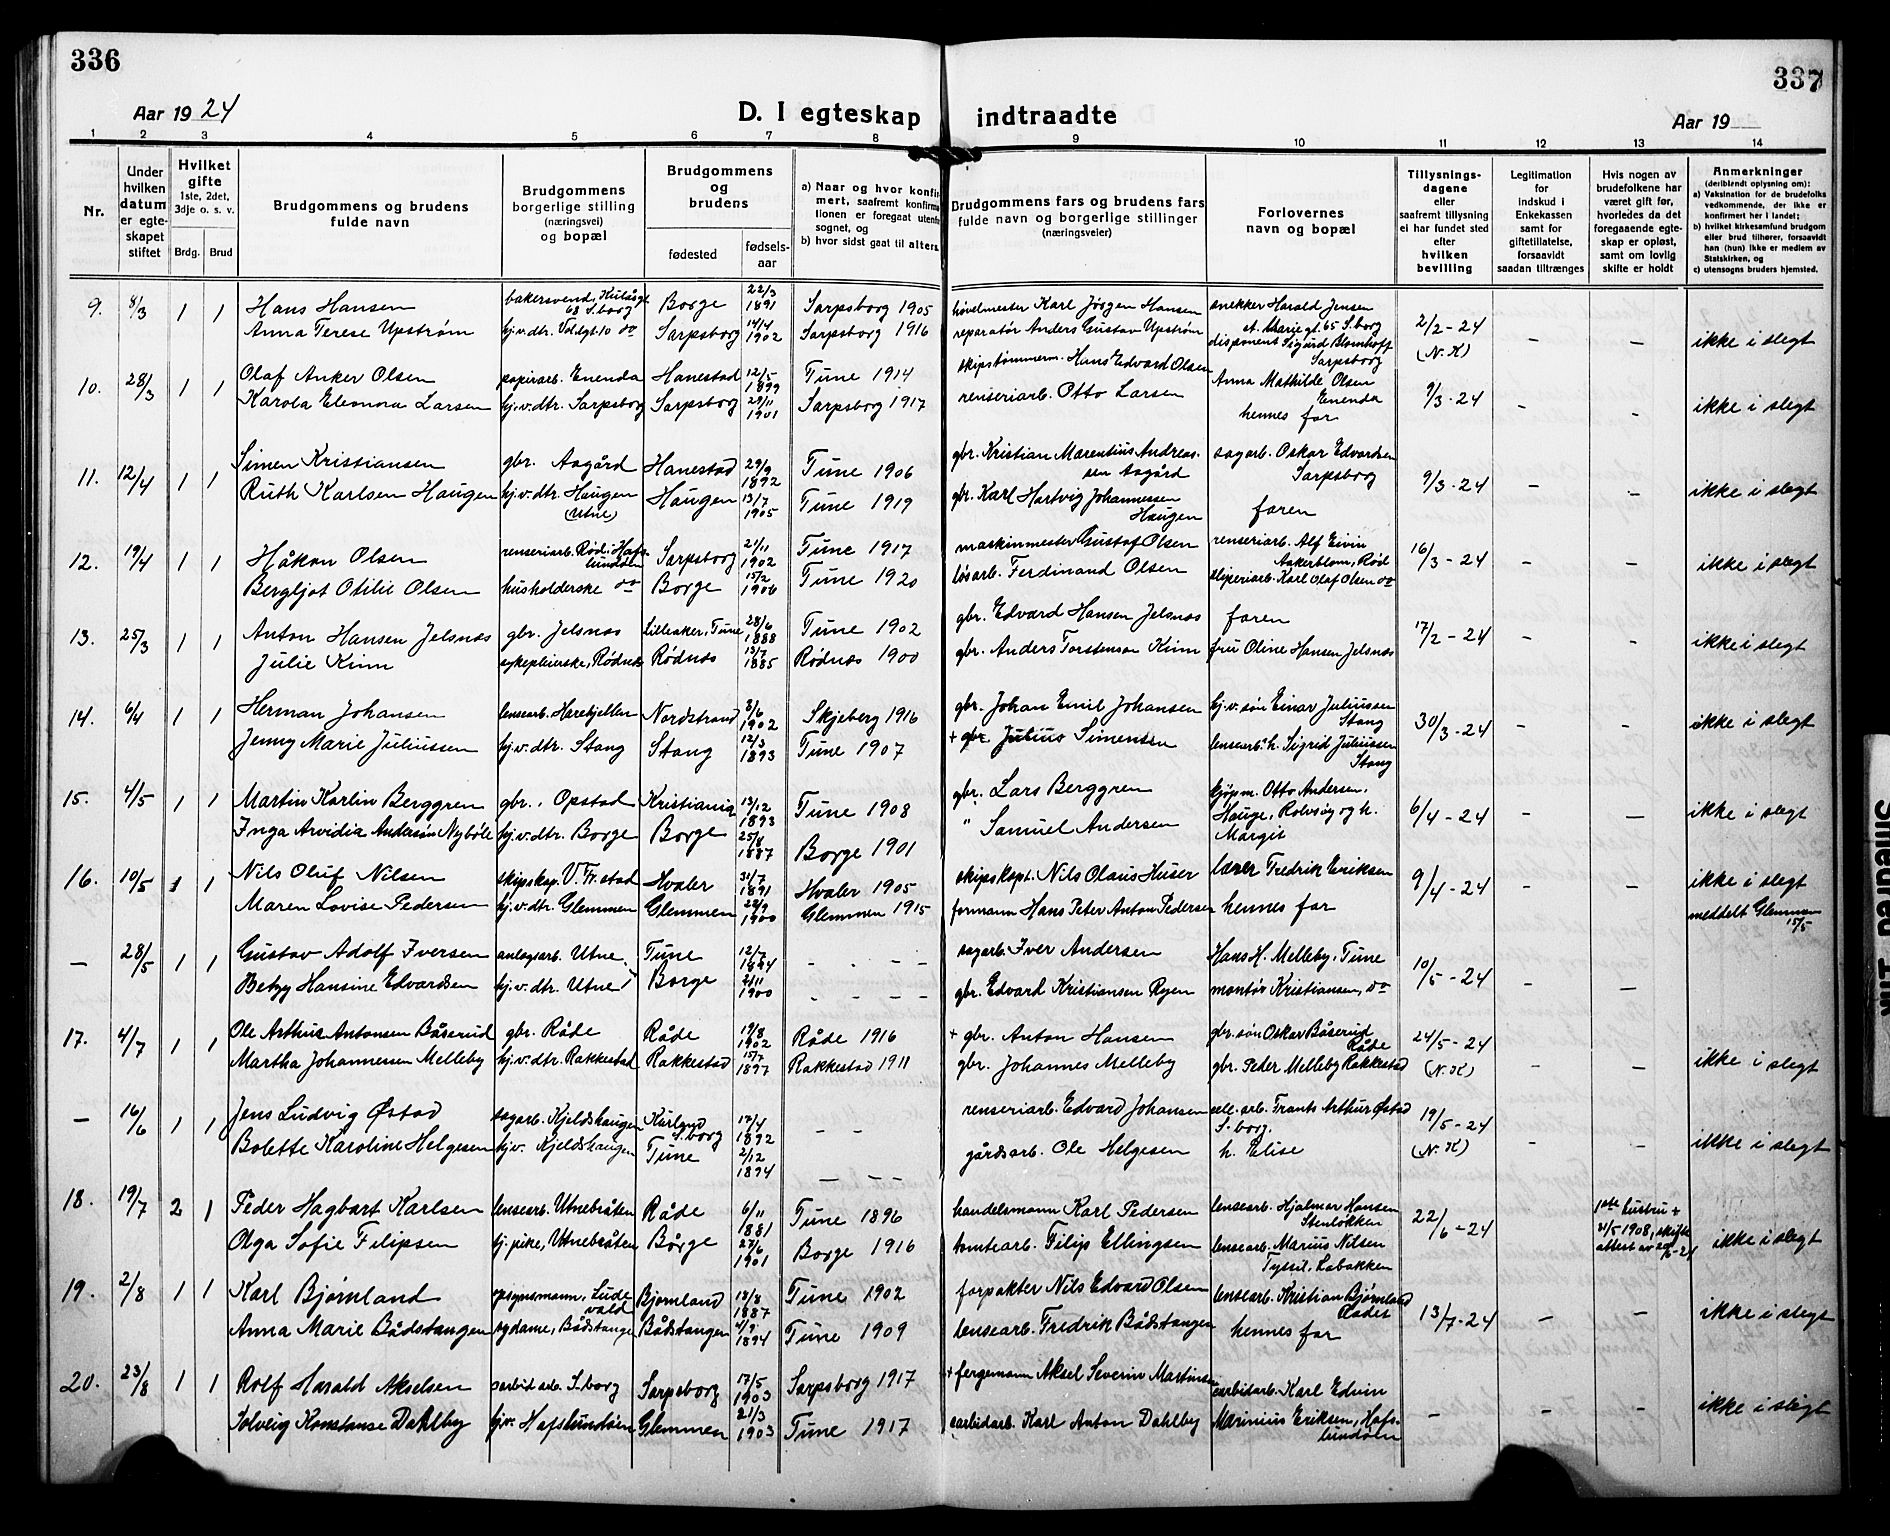 336
337
Aar 1924
D. I egteskap indtraadte
Aar 19
1 2 3 4 5 6 7 8 9 10 11 12 13 14
Nr.
Under hvilken datum er egteskapet stiftet
Hvilket gifte 1ste, 2det, 3dje o. s. v.
Brdg. Brud
Brudgommens og brudens fulde navn
Brudgommens borgerlige stilling (næringsvei) og bopæl
Brudgommens og brudens
fødested
fødselsaar
a) Naar og hvor konfirmert, saafremt konfirmationen er foregaat utenfor sognet, og
b) hvor sidst gaat til alters.
Brudgommens fars og brudens fars fulde navn og borgerlige stillinger (næringsveier)
Forlovernes navn og bopæl
Tillysningsdagene eller saafremt tillysning ei har fundet sted efter hvilken bevilling
Legitimation for indskud i Enkekassen samt for giftetillatelse, forsaavidt saadan tiltrænges
Hvis nogen av brudefolkene har været gift før, hvorledes da det foregaaende egteskap er opløst, samt om lovlig skifte er holdt
Anmerkninger (deriblandt oplysning om):
a) Vaksination for de brudefolks vedkommende, der ikke er konfirmert her i landet;
b) hvilket kirkesamfund brudgom eller brud tilhører, forsaavidt han (hun) ikke er medlem av Statskirken, og
c) utensogns bruders hjemsted.
9. 8/3 1 1 Hans Hansen bakersvend, Kulåsgt. 68 S.borg Borge 22/3 1891 Sarpsborg 1905 høvelmester Karl Jørgen Hansen snekker Harald Jensen St. Marie gt. 65 S.borg 2/2-24 (N.K) - - ikke i slegt
Anna Terese Upstrøm hj.v.dtr. Voldgt. 10 do Sarpsborg 14/4 1902 Sarpsborg 1916 reparatør Anders Gustav Upstrøm disponent Sigurd Blomhoff Sarpsborg
10. 28/3 1 1 Olaf Anker Olsen papirarb. Enenda Hanestad 12/5 1899 Tune 1914 skipstømmerm. Hans Edvard Olsen Anna Mathilde Olsen Enenda 9/3-24 - - ikke i slegt
Karola Eleonora Larsen hj.v.dtr. Sarpsborg Sarpsborg 29/11 1901 Sarpsborg 1917 renseriarb. Otto Larsen hennes far
11. 12/4 1 1 Simen Kristiansen gbr. Aagård Hanestad 29/9 1892 Tune 1906 gbr. Kristian Marentius Andreassen Aagård sagarb. Oskar Edvardsen Sarpsborg 9/3-24 - - ikke i slegt
Ruth Karlsen Haugen hj.v.dtr. Haugen (Utne) Haugen 13/7 1905 Tune 1919 gbr. Karl Hartvig Johannessen Haugen faren
12. 19/4 1 1 Håkon Olsen renseriarb. Rød i Hafslundsøen Sarpsborg 21/11 1902 Tune 1917 maskinmester Gustaf Olsen renseriarb. Alf Eivin Aakerblom, Rød 16/3-24 - - ikke i slegt
Bergljot Otilie Olsen husholderske do Borge 15/2 1906 Tune 1920 løsarb. Ferdinand Olsen sliperiarb. Karl Olaf Olsen do
13. 25/3 1 1 Anton Hansen Jelsnæs gbr. Jelsnæs Lilleaker, Tune 28/6 1888 Tune 1902 gbr. Edvard Hansen Jelsnæs faren 17/2-24 - - ikke i slegt
Julie Kinn sykepleierske, Rødnæs Rødnæs 13/7 1885 Rødnæs 1900 gbr. Anders Torstensen Kinn fru Oline Hansen Jelsnæs
14. 6/4 1 1 Herman Johansen lensearb. Harekjellen Nordstrand 3/6 1902 Skjeberg 1916 gbr. Johan Emil Johansen hj.v.søn Einar Juliussen Stang 30/3-24 - - ikke i slegt
Jenny Marie Juliussen hj.v.dtr. Stang Stang 12/3 1893 Tune 1907 + gbr Julius Simensen lensearb. h. Sigrid Juliussen Stang
15. 4/5 1 1 Martin Karlin Berggren gbr., Opstad Kristiania 13/12 1893 Tune 1908 gbr. Lars Berggren kjøpm. Otto Andersen, Hauge, Rolvsøy og h. Margit 6/4-24 - - ikke i slegt
Inga Arvidia Andersen Nybøle hj.v.dtr. Borge Borge 25/8 1887 Borge 1901 " Samuel Andersen
16. 10/5 1 1 Nils Oluf Nilsen skipskap. V. Fr.stad Hvaler 31/7 1891 Hvaler 1905 skipskapt. Nils Olaus Huser lærer Fredrik Eriksen 9/4-24 - - ikke i slegt
Maren Lovise Pedersen hj.v.dtr. Glemmen Glemmen 28/9 1900 Glemmen 1915 formann Hans Peter Anton Pedersen hennes far meddelt Glemmen 15/5
- 28/5 1 1 Gustav Adolf Iversen anlegsarb. Utne Tune 12/7 1894 - - - - sagarb. Iver Andersen Hans H. Melleby, Tune 10/5-24 - -
Betzy Hansine Edvardsen hj.v.dtr. Utne Borge 2/11 1900 - - - - gbr. Edvard Kristiansen Ryen montør Kristiansen, do
17. 4/7 1 1 Ole Arthur Antonsen Båserud gbr. Råde Råde 19/8 1902 Råde 1916 + gbr. Anton Hansen gbr. søn Oskar Båserud Råde 24/5-24 (N.K) - - ikke i slegt
Martha Johannessen Melleby hj.v.dtr. Rakkestad Rakkestad 15/7 1897 Rakkestad 1911 gbr. Johannes Melleby gbr. Peder Melleby Rakkestad
- 16/6 1 1 Jens Ludvig Østad sagarb. Kjeldshaugen Kurland S.borg 17/4 1892 - - renseriarb. Edvard Johansen cell. arb. Frants Arthur Østad S.borg. 19/5-24 (N.K) - - ikke i slegt
Bolette Karoline Helgesen hj.v. Kjeldshaugen Tune 2/12 1894 - - - gårdsarb. Ole Helgesen h. Elise
18. 19/7 2 1 Peder Hagbart Karlsen lensearb. Utnebråten Råde 6/11 1881 Tune 1896 handelsmann Karl Pedersen lensearb. Hjalmar Hansen Stenløkken 22/6-24 1ste hustru + 21/5 1908, skifteattest av ikke i slegt
Olga Sofie Filipsen tj. pike, Utnebråten Børge 27/6 1901 Borge 1916 tomtearb. Filip Ellingsen lensearb. Marius Nilsen Tyssil, Labakken
19. 2/8 1 1 Karl Bjørnland opsynsmann, Ludevald Bjørnland 18/8 1887 Tune 1902 forpakter Nils Edvard Olsen lensearb. Kristian Bjørnland Lødet 13/7-24 - - ikke i slegt
Anna Marie Bådstangen sydame, Bådstangen Bådstangen 4/9 1894 Tune 1909 lensearb. Fredrik Bådstangen hennes far
20. 23/8 1 1 Rolf Harald Akselsen carbid arb. S.borg Sarpsborg 17/5 1903 Sarpsborg 1917 + fergemann Aksel Severin Martinsen carbidarb. Karl Edvin - - - ikke i slegt
Solveig Konstanse Dahlby hj.v. Hafslundsøen Glemmen 21/3 1903 Tune 1917 carbidarb. Karl Anton Dahlby Marinius Eriksen, Hafslundsøen